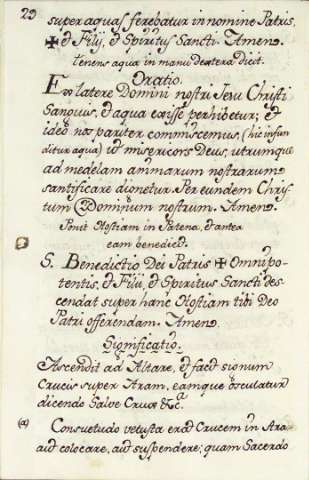 29
super aquas ferebatur in nomine Patris,
✠ & Filij, & Spiritus Sancti. Amen.
Tenens aqua in manu dextera dicit.
Oratio.
Ex latere Domini nostri Jesu Christi
Sanguis, & aqua exisse perhibetur; &
ideo nos pariter commiscemus, (hic infun
ditur aqua) ut misericors Deus, utrumque
ad medelam animarum nostrarum
santificare dignetur. Per eundem Chris
tum Dominum nostrum. Amen.
Ponit Hostiam in Patena, & antea
eam benedicit.
S. Benedictio Dei Patris ✠ Omnipo-
tentis, & Filij, & Spiritus Sancti des
cendat super hanc Hostiam tibi Deo
Patri offerendam. Amen.
Significatio.
Ascendit ad Altare, & facit signum
Crucis super Aram, eamque osculatur
dicendo Salve Crux &c.ª
(a) Consuetudo vetusta erat Crucem in Ara
aut colocare, aut suspendere; quam Sacerdo